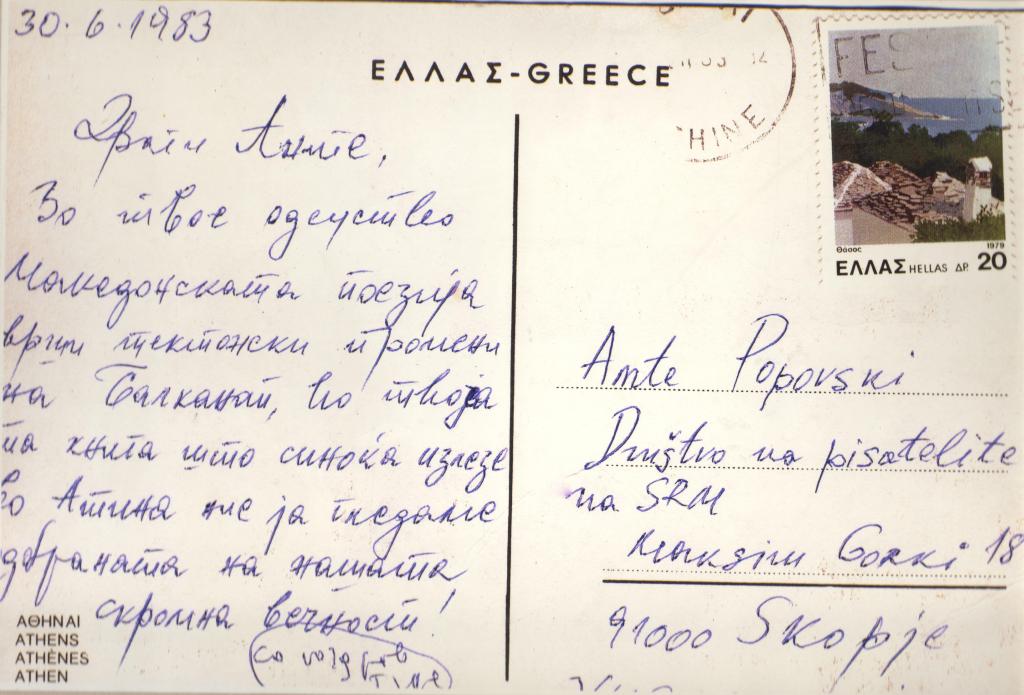 30.6.1983
ΕΛΛΑΣ-GREECE
HINE
FES
Θάσος 1979
ΕΛΛΑΣ HELLAS ΔΡ. 20
Драги Анте,
Во твое одсуство
Македонската поезија
врши тектонски промени
на Балканот, во твоја
та книга што синоќа излезе
во Атина ние ја гледаме
одбраната на нашата
скромна вечност!
Ante Popovski
Društvo na pisatelite
na SRM
Maksim Gorki 18
91000 Skopje
ΑΘΗΝΑΙ
ATHENS
ATHÈNES
ATHEN